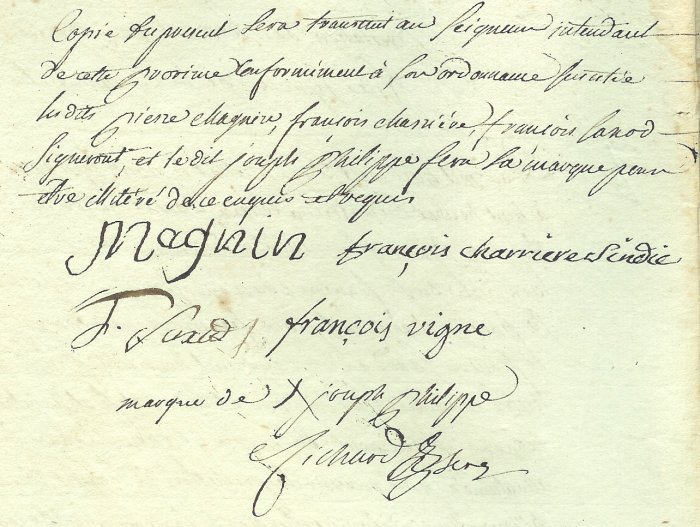 Copie du present sera transmit au Seigneur intendant
de cette province conformément à son ordonnance susditée
lesdits pierre Magnin, françois charriére, françois
signeront, et le dit joseph Philippe fera sa marque pour
etre illiteré de ce enquis et requis
Magnin françois charriere Sindic
F. françois vigne
marque de X joseph Philippe
Richard